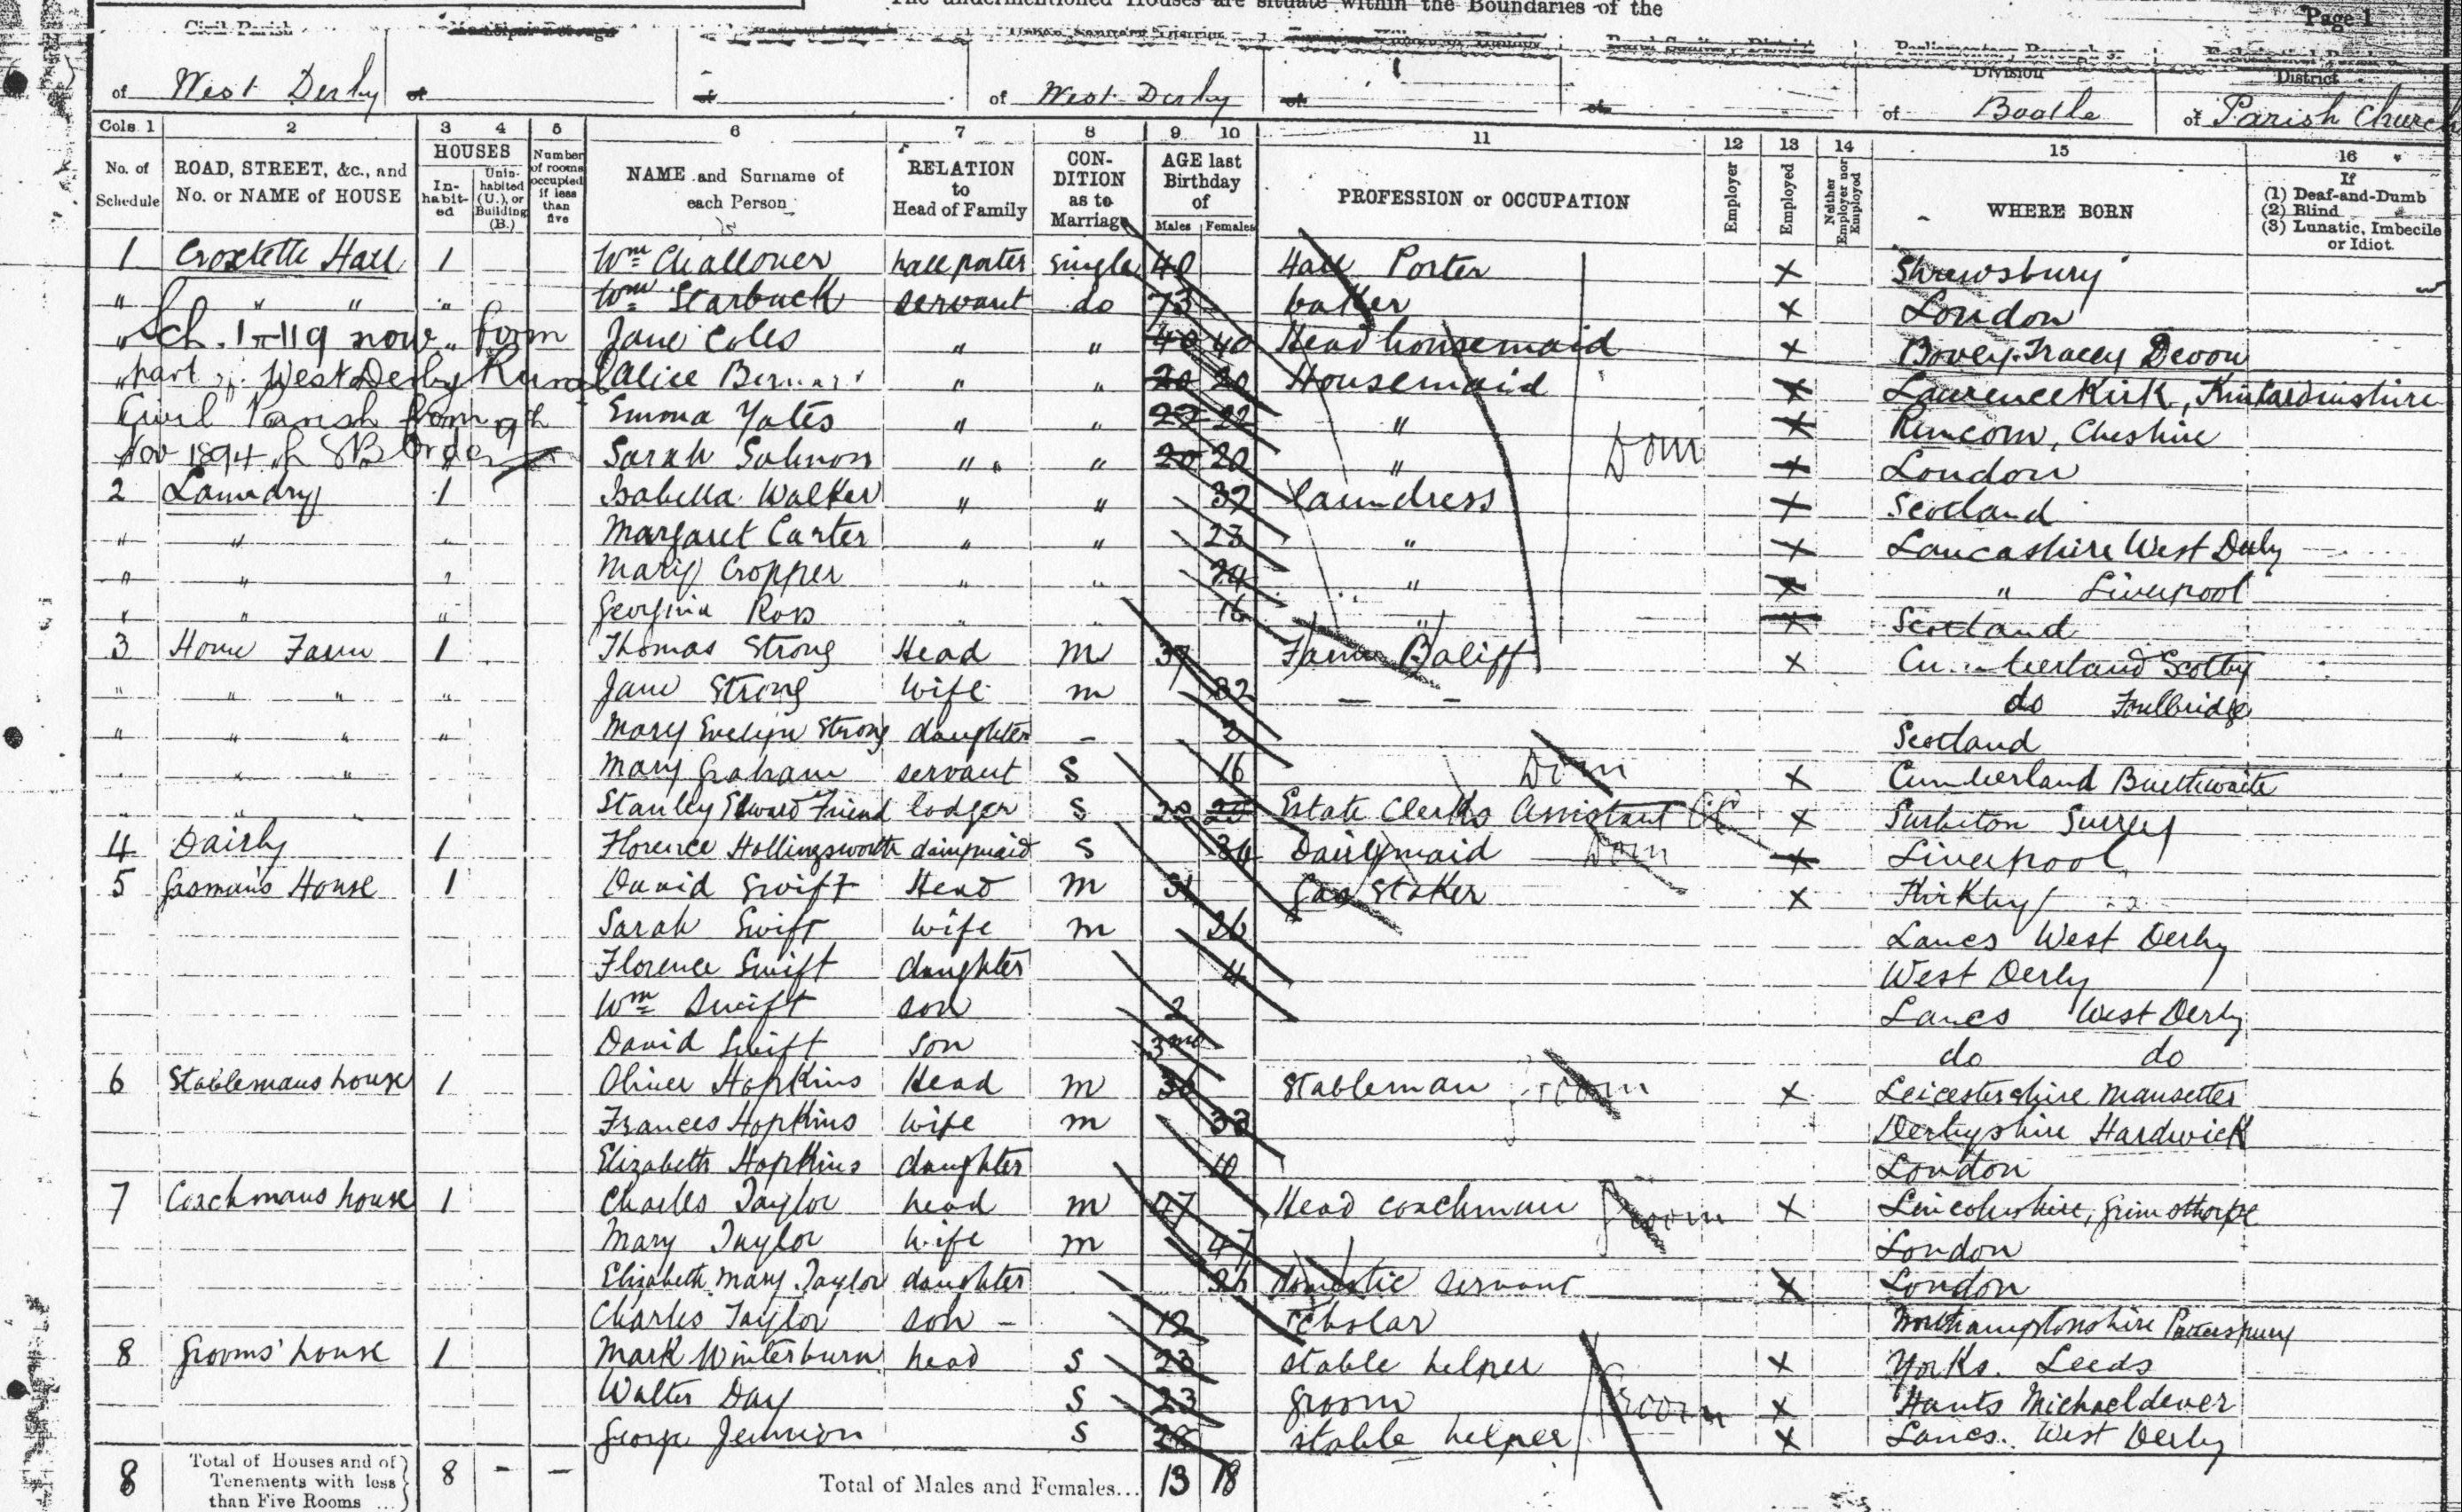 The undermentioned Houses are situate within the Boundaries of the
Page 1
Civil Parish Municipal Borough Urban Sanitary District Rural Sanitary District Parliamentary Borough or Division Ecclesiastical Parish or District
of West Derby of of of West Derby of of of Bootle of Parish Church
Cols. 1 2 3 4 5 6 7 8 9 10 11 12 13 14 15 16
No. of Schedule ROAD, STREET, &c., and No. or NAME of HOUSE HOUSES In-habit-ed Unin-habited (U.), or Building (B.) Number of rooms occupied if less than five NAME and Surname of each Person RELATION to Head of Family CON-DITION as to Marriage AGE last Birthday of Males Females PROFESSION or OCCUPATION Employer Employed Neither Employer nor Employed WHERE BORN If (1) Deaf-and-Dumb (2) Blind (3) Lunatic, Imbecile or Idiot
1 Croxteth Hall 1 Wm Challoner hall porter single 40 Hall Porter X Shrewsbury
" " " " Wm Starbuck servant do 73 baker X London
" Sch. 1-119 now " form Jane Coles " " 40 40 Head housemaid X Bovey Tracey Devon
" part " West Derby Rural Alice " " 20 20 Housemaid X Laurencekirk, Kincardinshire
Civil Parish from 9th Emma Yates " " 22 22 " X Runcorn, Cheshire
Nov 1894 Order Sarah Salmon " " 20 20 " Dom X London
2 Laundry 1 Isabella Walker " " 32 laundress X Scotland
" " " Margaret Carter " " 23 " X Lancashire West Derby
" " " Mary Cropper " " 24 " X " Liverpool
" " " Georgina Ross " " 16 " X Scotland
3 Home Farm 1 Thomas Strong Head m 37 Farm Baliff X Cumberland Scotby
" " " " Jane Strong wife m 32 — - do
" " " " Mary Evelyn Strong daughter - 2 Scotland
" " " Mary Graham servant S 16 Dom X Cumberland
" " Stanley Edward Friend lodger S 20 20 Estate Clerks Assistant X Surbiton Surrey
4 Dairy 1 Florence Hollingsworth dairymaid S 34 Dairymaid Dom X Liverpool
5 Gasmans House 1 David Swift Head m 31 Gas Stoker X Kirkby
Sarah Swift wife m 26 Lancs West Derby
Florence Swift daughter 4 West Derby
Wm Swift son 2 Lancs West Derby
David Swift son 3mo do do
6 Stablemans house 1 Oliver Hopkins Head m 36 Stableman groom X Leicestershire Mansetter
Frances Hopkins wife m 33 Derbyshire Hardwick
Elizabeth Hopkins daughter 10 London
7 Coachmans house 1 Charles Taylor head m 47 Head coachman groom X Lincolnshire, Grimsthorpe
Mary Taylor wife m 47 London
Elizabeth Mary Taylor daughter 26 domestic servant X London
Charles Taylor son - 12 scholar Northamptonshire
8 Grooms' house 1 Mark Winterburn head S 23 stable helper X Yorks. Leeds
Walter Day S 23 groom Groom X Hants Micheldever
George Jennion S 26 stable helper X Lancs. West Derby
8 Total of Houses and of Tenements with less than Five Rooms ... 8 - - Total of Males and Females... 13 18